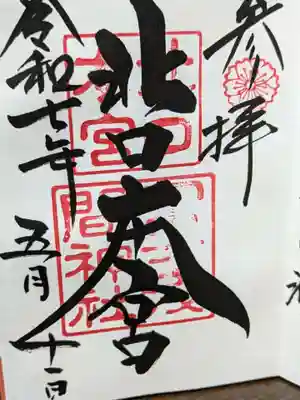 参拝
北口本宮
令和七年
五月十一日
北口
本宮
冨士浅
間神社